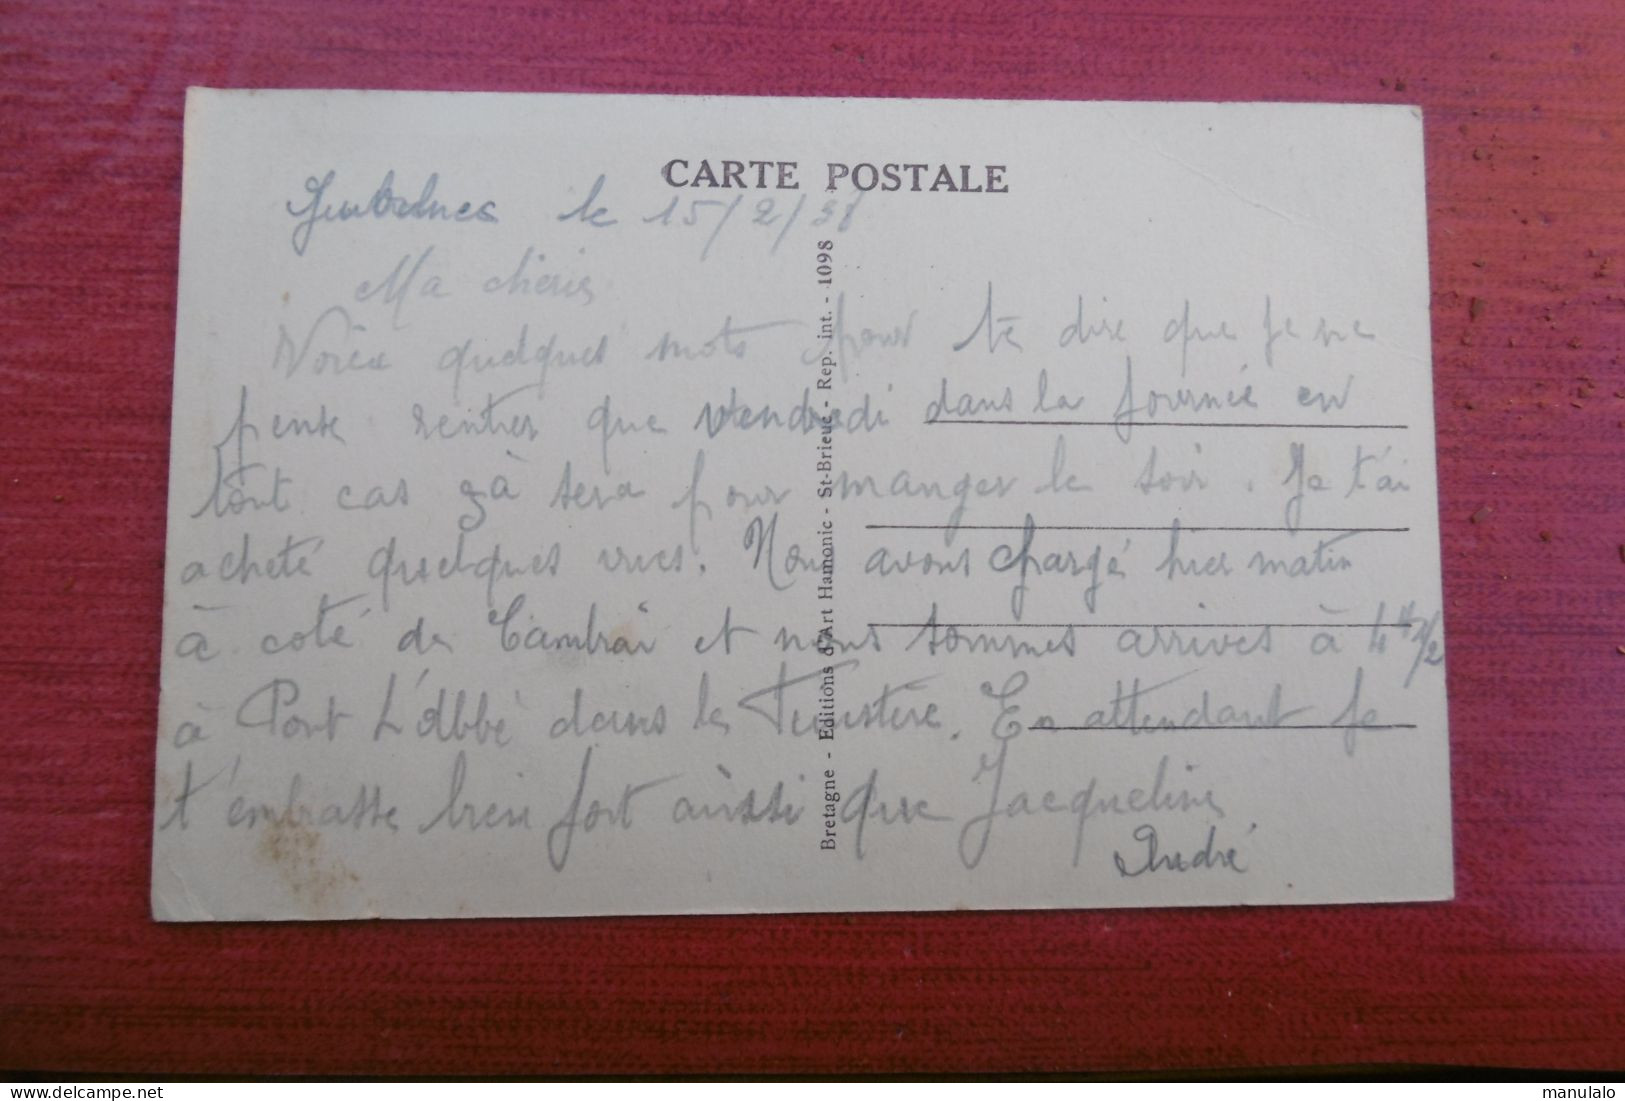 CARTE POSTALE
le 15/2/38
Ma chérie
Voiçi quelques mots pour te dire que je ne
pense rentrer que vendredi dans la journée en
tout cas çà sera pour manger le soir. Je t'ai
acheté quelques vues. Nous avons chargé hier matin
à coté de Cambrai et nous sommes arrivés à 4H 1/2
à Pont L'Abbé dans le Finistère. En attendant je
t'embrasse bien fort aìnssi que Jacqueline
André
Bretagne - Editions d'Art Hamonic - St-Brieuc - Rep. int. - 1098
delcampe.net
manulalo